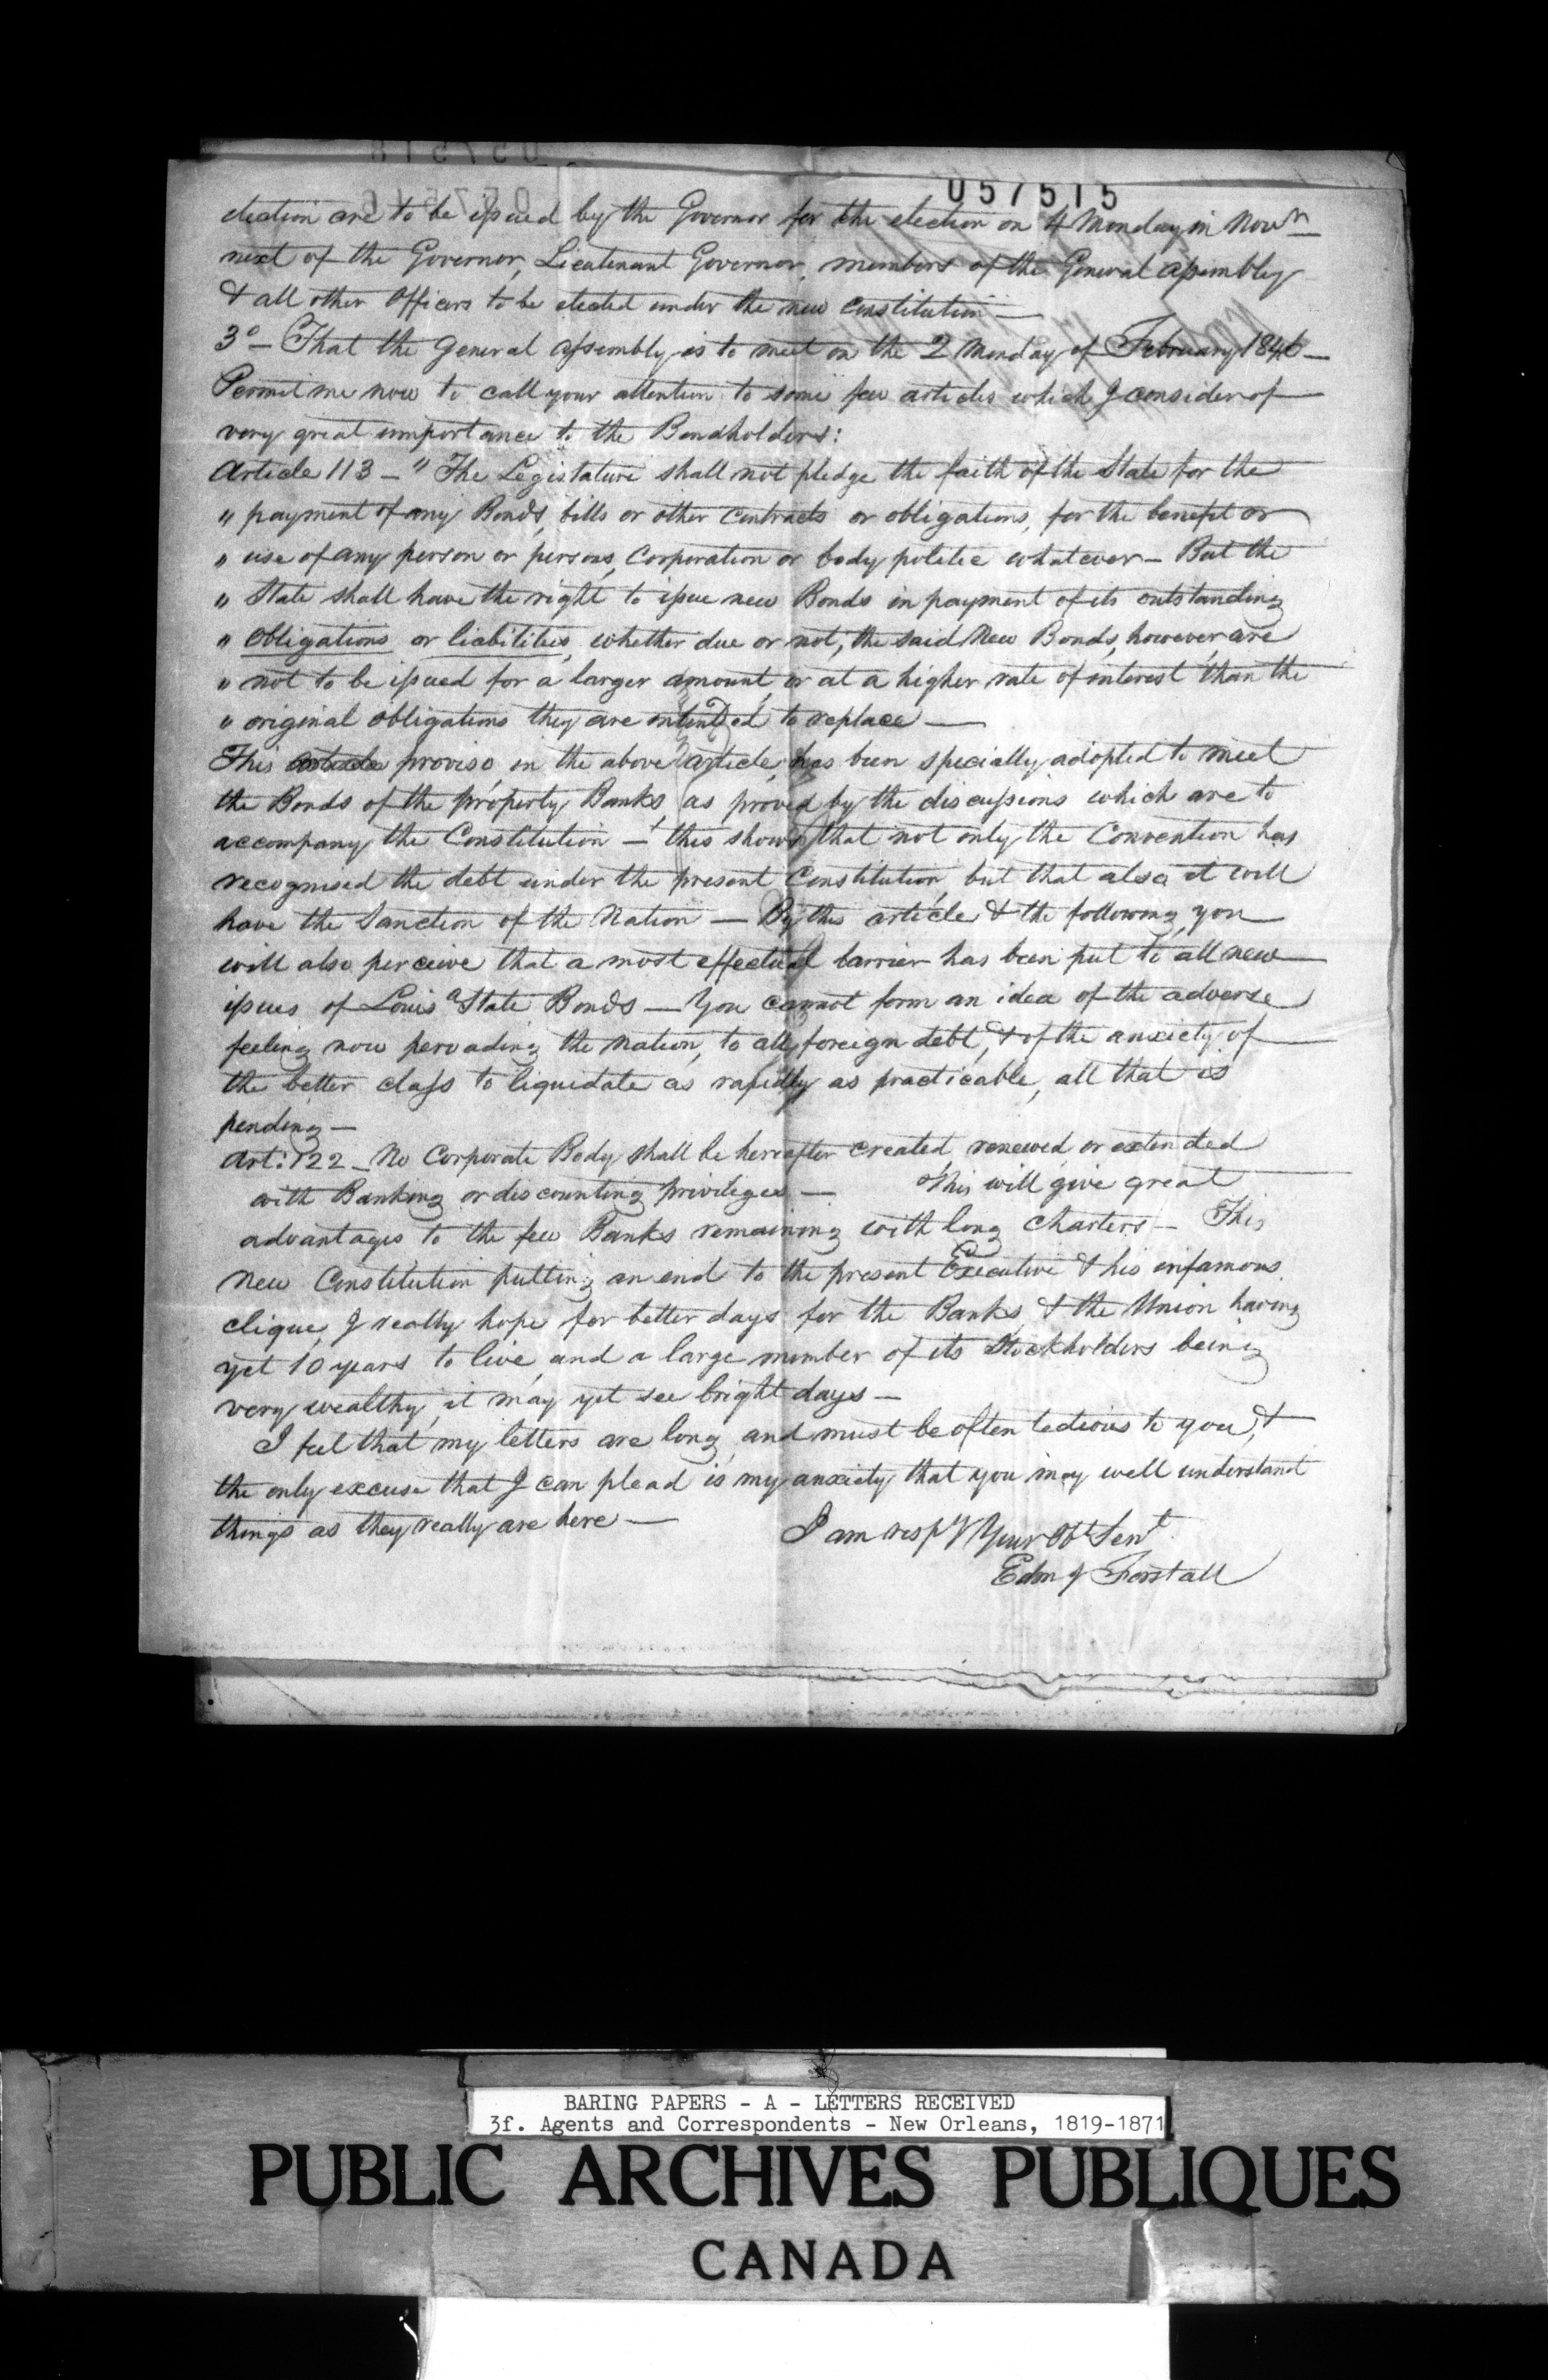 057515
election are to be issued by the Governor for the election on 4 Monday in Novr
next of the Governor, Lieutenant Governor, members of the General assembly
& all other officers to be elected under the new constitution —
3o — That the general assembly is to meet on the 2 Monday of February 1846 —
Permit me now to call your attention to some few articles which I consider of
very great importance to the Bondholders:
Article 113 — " The Legislature shall not pledge the faith of the State for the
" payment of any Bonds, bills or other contracts or obligations, for the benefit or
" use of any person or persons, Corporation or body politic whatever — But the
" State shall have the right to issue new Bonds in payment of its outstanding
" obligations or liabilities, whether due or not, the said New Bonds, however, are
" not to be issued for a larger amount, or at a higher rate of interest than the
" original obligations they are intended to replace —
This article proviso in the above article, has been specially adopted to meet
the Bonds of the property Banks, as proved by the discussions which are to
accompany the Constitution — this shows that not only the Convention has
recognised the debt under the present Constitution, but that also it will
have the Sanction of the Nation — By this article & the following, you
will also perceive that a most effectual barrier has been put to all new
issues of Louisa State Bonds — You cannot form an idea of the adverse
feeling now pervading the Nation, to all foreign debt, & of the anxiety of
the better class to liquidate as rapidly as practicable, all that is
pending —
Art: 122 — No Corporate Body shall be hereafter created, renewed or extended
with Banking or discounting privileges — This will give great
advantages to the few Banks remaining with long charters — This
New Constitution putting an end to the present Executive & his infamous
clique, I really hope for better days for the Banks, & the Union having
yet 10 years to live, and a large number of its Stockholders being
very wealthy, it may yet see bright days —
I feel that my letters are long, and must be often tedious to you, &
the only excuse that I can plead is my anxiety that you may well understand
things as they really are here —
I am respy Your Obt Servt
Edm J Forstall
BARING PAPERS - A - LETTERS RECEIVED
3f. Agents and Correspondents - New Orleans, 1819-1871
PUBLIC ARCHIVES PUBLIQUES
CANADA